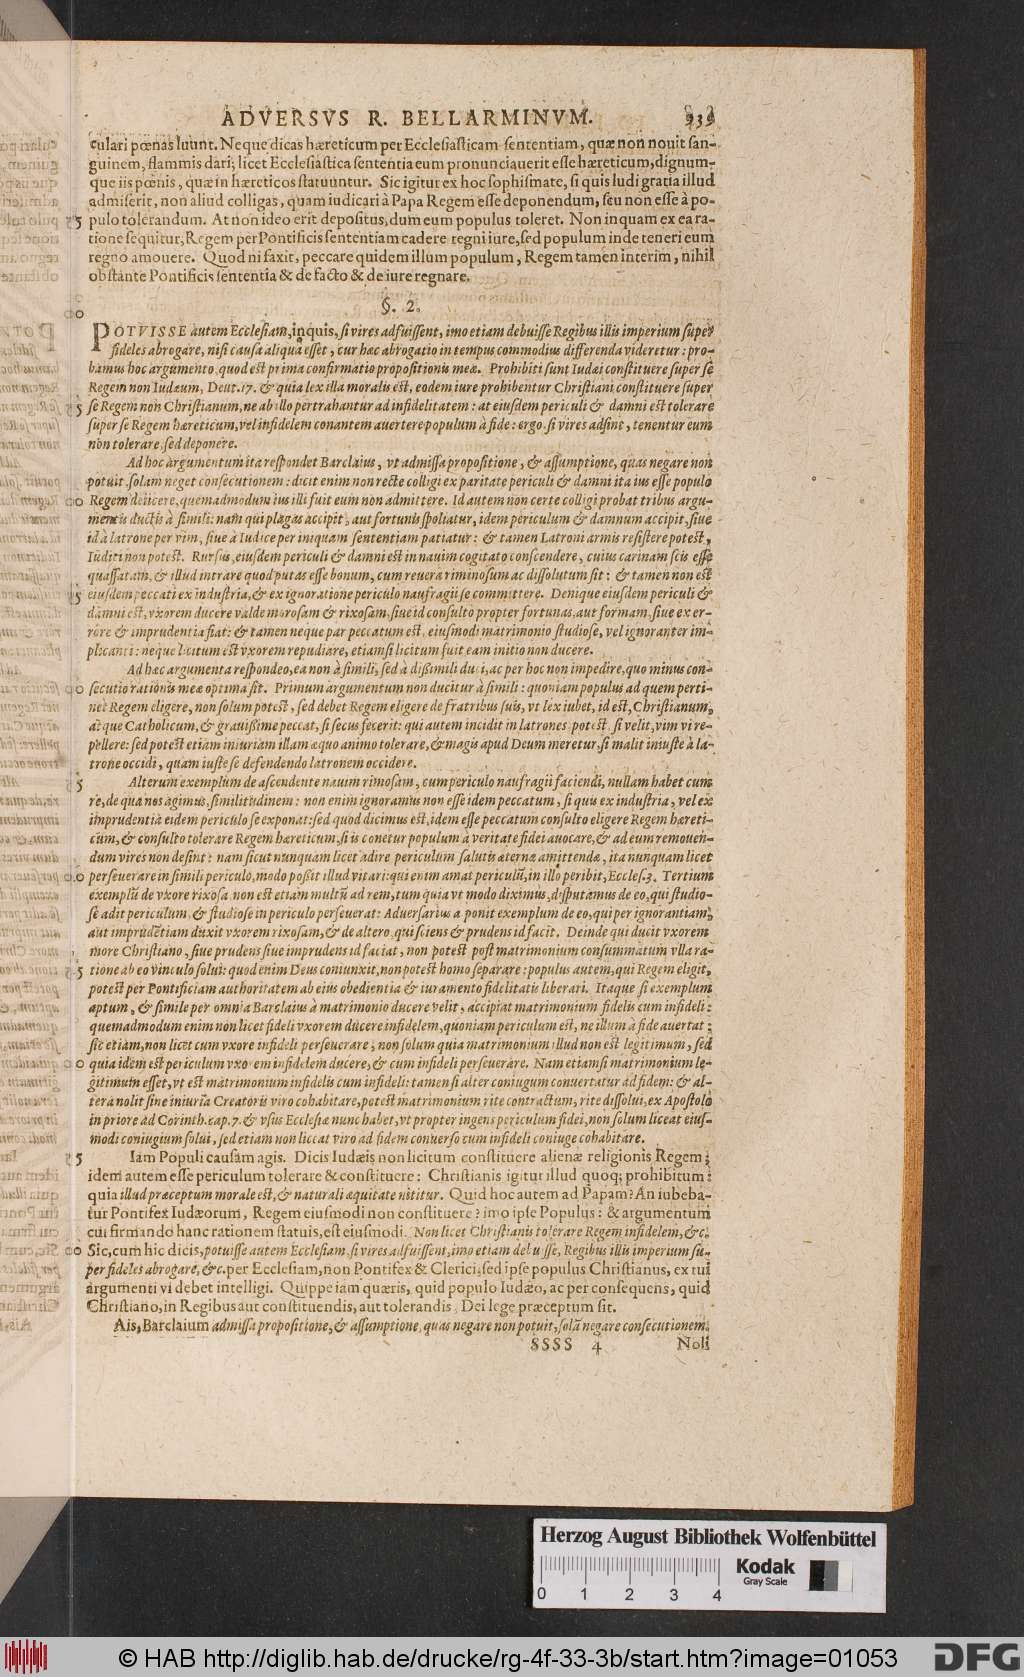 ADVERSVS R. BELLARMINVM. 939
culari pœnas luunt. Neque dicas hæreticum per Ecclesiasticam sententiam, quæ non novit san-
guinem, flammis dari; licet Ecclesiastica sententia eum pronunciaverit esse hæreticum, dignum-
que iis pœnis, quæ in hæreticos statuuntur. Sic igitur ex hoc sophismate, si quis ludi gratia illud
admiserit, non aliud colligas, quam iudicari à Papa Regem esse deponendum, seu non esse à po-
5 pulo tolerandum. At non ideo erit depositus, dum eum populus toleret. Non inquam ex ea ra-
tione sequitur, Regem per Pontificis sententiam cadere regni iure, sed populum inde teneri eum
regno amovere. Quod ni faxit, peccare quidem illum populum, Regem tamen interim, nihil
obstante Pontificis sententia & de facto & de iure regnare.
§. 2.
POTVISSE autem Ecclesiam, inquis, si vires adfuissent, imo etiam debuisse Regibus illis imperium super
fideles abrogare, nisi causa aliqua esset, cur hæc abrogatio in tempus commodius differenda videretur: pro-
bamus hoc argumento, quod est prima confirmatio propositionis meæ. Prohibiti sunt Iudæi constituere super se
Regem non Iudæum, Deut. 17. & quia lex illa moralis est, eodem iure prohibentur Christiani constituere super
5 se Regem non Christianum, ne ab illo pertrahantur ad infidelitatem: at eiusdem periculi & damni est tolerare
super se Regem hæreticum, vel infidelem conantem avertere populum à fide: ergo si vires adsint, tenentur eum
non tolerare, sed deponere.
Ad hoc argumentum ita respondet Barclaius, vt admissa propositione, & assumptione, quas negare non
potuit, solam neget consecutionem: dicit enim non recte colligi ex paritate periculi & damni ita ius esse populo
Regem deiicere, quemadmodum ius illi fuit eum non admittere. Id autem non certe colligi probat tribus argu-
mentis ductis à simili: nam qui plagas accipit, aut fortunis spoliatur, idem periculum & damnum accipit, sive
id à latrone per vim, sive à Iudice per iniquam sententiam patiatur: & tamen Latroni armis resistere potest,
Iudici non potest. Rursus, eiusdem periculi & damni est in navim cogitato conscendere, cuius carinam scis esse
quassatam, & illud intrare quod putas esse bonum, cum revera riminosum ac dissolutum sit: & tamen non est
5 eiusdem peccati ex industria, & ex ignoratione periculo naufragii se committere. Denique eiusdem periculi &
damni est, vxorem ducere valde morosam & rixosam, sive id consulto propter fortunas, aut formam, sive ex er-
rore & imprudentia fiat: & tamen neque par peccatum est, eiusmodi matrimonio studiose, vel ignoranter im-
plicanti: neque licitum est vxorem repudiare, etiamsi licitum fuit eam initio non ducere.
Ad hæc argumenta respondeo, ea non à simili, sed à dissimili duci, ac per hoc non impedire, quo minus con-
secutio rationis meæ optima sit. Primum argumentum non ducitur à simili: quoniam populus ad quem perti-
net Regem eligere, non solum potest, sed debet Regem eligere de fratribus suis, vt lex iubet, id est, Christianum,
atque Catholicum, & gravissime peccat, si secus fecerit: qui autem incidit in latrones potest, si velit, vim vi re-
pellere: sed potest etiam iniuriam illam æquo animo tolerare, & magis apud Deum meretur, si malit iniuste à la-
trone occidi, quam iuste se defendendo latronem occidere.
5 Alterum exemplum de ascendente navim rimosam, cum periculo naufragii faciendi, nullam habet cum
re, de qua nos agimus, similitudinem: non enim ignoramus non esse idem peccatum, si quis ex industria, vel ex
imprudentia eidem periculo se exponat: sed quod dicimus est, idem esse peccatum consulto eligere Regem hæreti-
cum, & consulto tolerare Regem hæreticum, si is conetur populum à veritate fidei avocare, & ad eum removen-
dum vires non desint: nam sicut nunquam licet adire periculum salutis æternæ amittendæ, ita nunquam licet
perseverare in simili periculo, modo possit illud vitari: qui enim amat periculũ, in illo peribit, Eccles. 3. Tertium
exemplũ de vxore rixosa non est etiam multũ ad rem, tum quia vt modo diximus, disputamus de eo, qui studio-
se adit periculum, & studiose in periculo perseverat: Adversarius aũt ponit exemplum de eo, qui per ignorantiam,
aut imprudẽtiam duxit vxorem rixosam, & de altero, qui sciens & prudens id facit. Deinde qui ducit vxorem
more Christiano, sive prudens sive imprudens id faciat, non potest post matrimonium consummatum vlla ra-
5 tione ab eo vinculo solui: quod enim Deus coniunxit, non potest homo separare: populus autem, qui Regem eligit,
potest per Pontificiam authoritatem ab eius obedientia & iuramento fidelitatis liberari. Itaque si exemplum
aptum, & simile per omnia Barclaius à matrimonio ducere velit, accipiat matrimonium fidelis cum infideli:
quemadmodum enim non licet fideli vxorem ducere infidelem, quoniam periculum est, ne illum à fide avertat:
sic etiam, non licet cum vxore infideli perseverare, non solum quia matrimonium illud non est legitimum, sed
quia idem est periculum vxorem infidelem ducere, & cum infideli perseverare. Nam etiamsi matrimonium le-
gitimum esset, vt est matrimonium infidelis cum infideli: tamen si alter coniugum convertatur ad fidem: & al-
tera nolit sine iniuria Creatoris viro cohabitare, potest matrimonium rite contractum, rite dissolui, ex Apostolo
in priore ad Corinth. cap. 7. & vsus Ecclesiæ nunc habet, vt propter ingens periculum fidei, non solum liceat eius-
modi coniugium solui, sed etiam non liceat viro ad fidem converso cum infideli coniuge cohabitare.
5 Iam Populi causam agis. Dicis Iudæis non licitum constituere alienæ religionis Regem;
idem autem esse periculum tolerare & constituere: Christianis igitur illud quoq; prohibitum:
quia illud præceptum morale est, & naturali æquitate nititur. Quid hoc autem ad Papam? An iubeba-
tur Pontifex Iudæorum, Regem eiusmodi non constituere? imo ipse Populus: & argumentum
cui firmando hanc rationem statuis, est eiusmodi. Non licet Christianis tolerare Regem infidelem, &c.
Sic, cum hic dicis, potuisse autem Ecclesiam, si vires adfuissent, imo etiam debuisse, Regibus illis imperium su-
per fideles abrogare, &c. per Ecclesiam, non Pontifex & Clerici, sed ipse populus Christianus, ex tui
argumenti vi debet intelligi. Quippe iam quæris, quid populo Iudæo, ac per consequens, quid
Christiano, in Regibus aut constituendis, aut tolerandis, Dei lege præceptum sit.
Ais, Barclaium admissa propositione, & assumptione, quas negare non potuit, solã negare consecutionem.
SSSS 4 Noli
Herzog August Bibliothek Wolfenbüttel
0 1 2 3 4
Kodak
Gray Scale
© HAB http://diglib.hab.de/drucke/rg-4f-33-3b/start.htm?image=01053
DFG